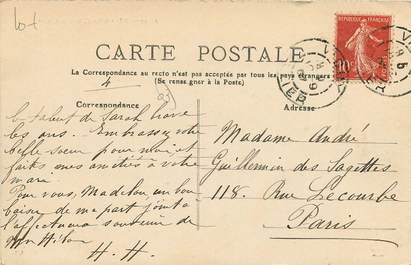 lot
CARTE POSTALE
La Correspondance au recto n'est pas acceptée par tous les pays étrangers
(Se renseigner à la Poste)
4
Correspondance
Adresse
REPUBLIQUE FRANÇAISE
10
de Sarah
les ans. Embrassez votre
belle soeur pour moi et
faits mes amitiés à votre
mari
Pour vous, Madelon un bon
de ma part joint à
l'affectueux souvenir de
H. H.
Madame André
Guillermin des Sagettes
118. Rue Lecourbe
Paris